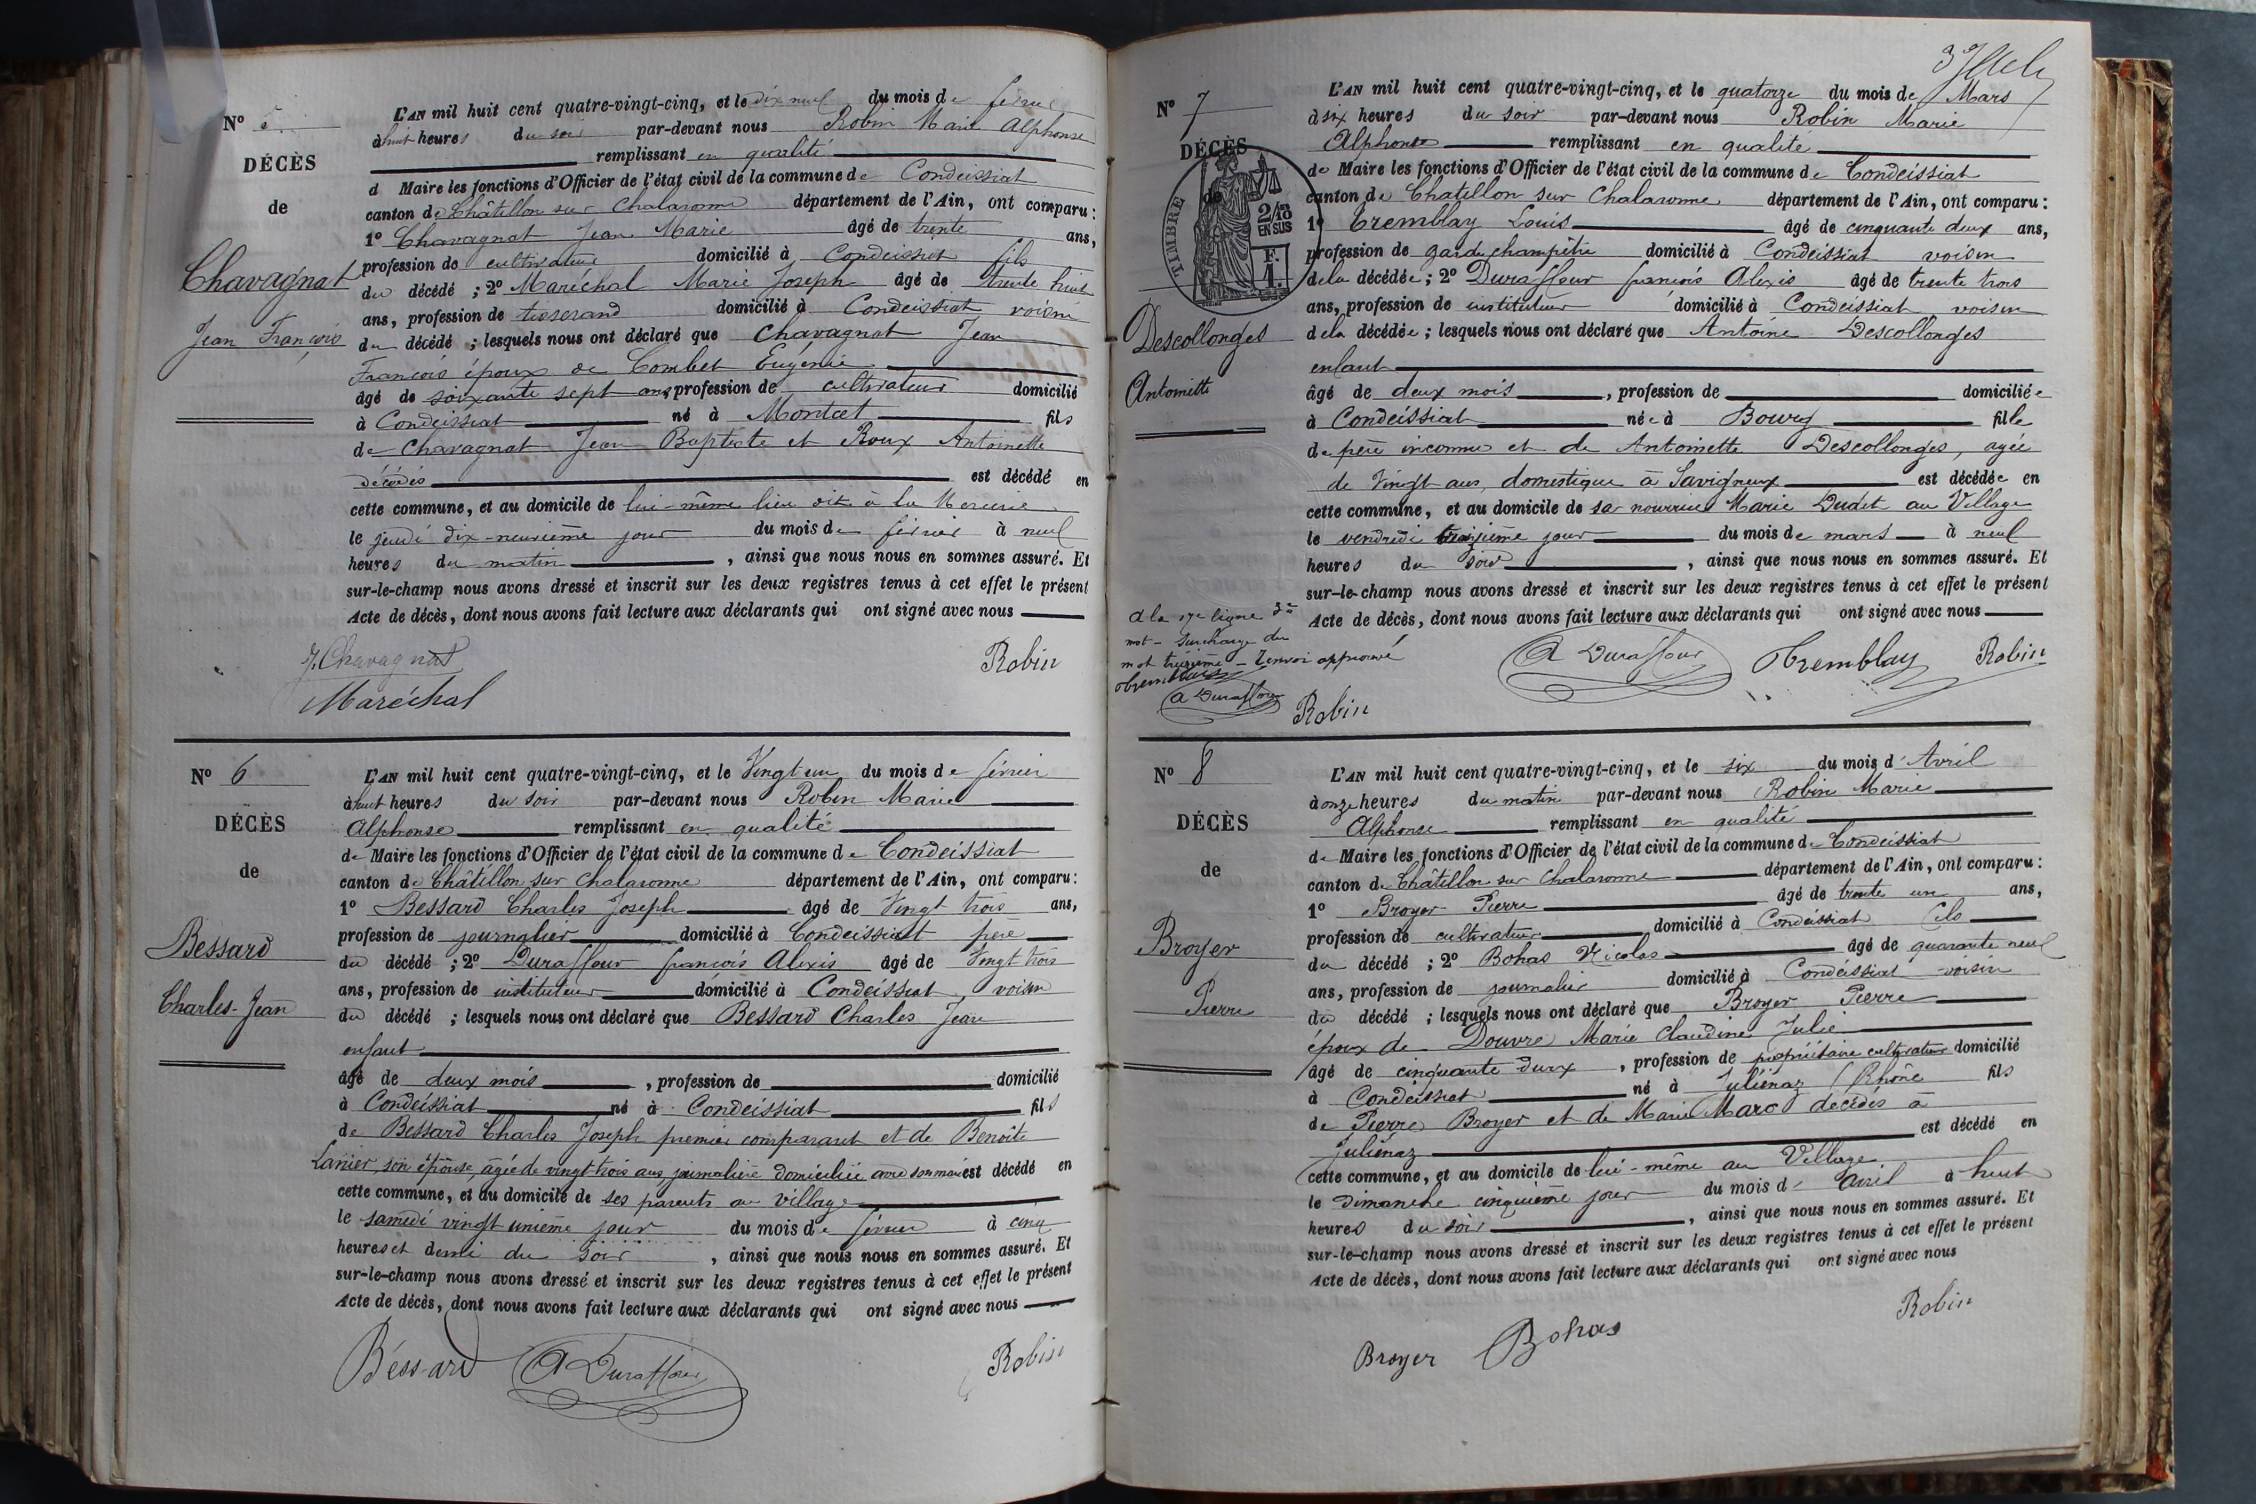 N° 5
DÉCÈS
de
Chavagnat
Jean François
L'AN mil huit cent quatre-vingt-cinq, et le dix neuf du mois de février
à huit heures du soir par-devant nous Robin Marie Alphonse
remplissant en qualité
d Maire les fonctions d'Officier de l'état civil de la commune de Condeissiat
canton de Châtillon sur Chalaronne département de l'Ain, ont comparu :
1° Chavagnat Jean Marie âgé de trente ans,
profession de cultivateur domicilié à Condeissiat fils
du décédé ; 2° Maréchal Marie Joseph âgé de trente huit
ans, profession de tisserand domicilié à Condeissiat voisin
du décédé ; lesquels nous ont déclaré que Chavagnat Jean
François époux de Combet Eugénie
âgé de soixante sept ans profession de cultivateur domicilié
à Condeissiat né à Montcet fils
de Chavagnat Jean Baptiste et Roux Antoinette
décédés est décédé en
cette commune, et au domicile de lui-même lieu dit à la
le jeudi dix-neuvième jour du mois de février à neuf
heures du matin , ainsi que nous nous en sommes assuré. Et
sur-le-champ nous avons dressé et inscrit sur les deux registres tenus à cet effet le présent
Acte de décès, dont nous avons fait lecture aux déclarants qui ont signé avec nous
J. Chavagnat
Robin
Maréchal
N° 6
DÉCÈS
de
Bessard
Charles-Jean
L'AN mil huit cent quatre-vingt-cinq, et le Vingt un du mois de février
à huit heures du soir par-devant nous Robin Marie
Alphonse remplissant en qualité
de Maire les fonctions d'Officier de l'état civil de la commune de Condeissiat
canton de Châtillon sur Chalaronne département de l'Ain, ont comparu :
1° Bessard Charles Joseph âgé de Vingt trois ans,
profession de journalier domicilié à Condeissiat père
du décédé ; 2° Duraffour françois Alexis âgé de Vingt trois
ans, profession de instituteur domicilié à Condeissiat voisin
du décédé ; lesquels nous ont déclaré que Bessard Charles Jean
enfant
âgé de deux mois , profession de domicilié
à Condeissiat né à Condeissiat fils
de Bessard Charles Joseph premier comparant et de Benoîte
Lanier, son épouse, âgée de vingt trois ans, journalière domiciliée avec son mari est décédé en
cette commune, et au domicile de ses parents au village
le samedi vingt unième jour du mois de février à cinq
heures et demi du soir , ainsi que nous nous en sommes assuré. Et
sur-le-champ nous avons dressé et inscrit sur les deux registres tenus à cet effet le présent
Acte de décès, dont nous avons fait lecture aux déclarants qui ont signé avec nous
Bessard
A Duraffour
Robin
N° 7
DÉCÈS
de
TIMBRE
2/10 EN SUS
F. 1.
Descollonges
Antoinette
L'AN mil huit cent quatre-vingt-cinq, et le quatorze du mois de Mars
à six heures du soir par-devant nous Robin Marie
Alphonse remplissant en qualité
de Maire les fonctions d'Officier de l'état civil de la commune de Condeissiat
canton de Chatillon sur Chalaronne département de l'Ain, ont comparu :
1° Tremblay Louis âgé de cinquante deux ans,
profession de garde champêtre domicilié à Condeissiat voisin
de la décédée ; 2° Duraffour françois Alexis âgé de trente trois
ans, profession de instituteur domicilié à Condeissiat voisin
de la décédée ; lesquels nous ont déclaré que Antoine Descollonges
enfant
âgé de deux mois , profession de domiciliée
à Condeissiat née à Bourg fille
de père inconnu et de Antoinette Descollonges, agée
de Vingt ans, domestique à Savigneux est décédée en
cette commune, et au domicile de sa nourrice Marie Dudet au Village
le vendredi treizième jour du mois de mars à neuf
heures du soir , ainsi que nous nous en sommes assuré. Et
sur-le-champ nous avons dressé et inscrit sur les deux registres tenus à cet effet le présent
Acte de décès, dont nous avons fait lecture aux déclarants qui ont signé avec nous
A la 17e ligne 3me
mot - Surcharge du
mot treizième - Renvoi approuvé
Tremblay
A Duraffour
Robin
A Duraffour
Tremblay
Robin
N° 8
DÉCÈS
de
Broyer
Pierre
L'AN mil huit cent quatre-vingt-cinq, et le six du mois d'Avril
à onze heures du matin par-devant nous Robin Marie
Alphonse remplissant en qualité
de Maire les fonctions d'Officier de l'état civil de la commune de Condeissiat
canton de Châtillon sur Chalaronne département de l'Ain, ont comparu :
1° Broyer Pierre âgé de trente un ans,
profession de cultivateur domicilié à Condeissiat fils
du décédé ; 2° Bohas Nicolas âgé de quarante neuf
ans, profession de journalier domicilié à Condeissiat voisin
du décédé ; lesquels nous ont déclaré que Broyer Pierre
époux de Douvre Marie Claudine Julie
âgé de cinquante deux , profession de propriétaire cultivateur domicilié
à Condeissiat né à Juliénaz (Rhône fils
de Pierre Broyer et de Marie Marc décédés à
Juliénaz est décédé en
cette commune, et au domicile de lui-même au Village
le dimanche cinquième jour du mois d' avril à huit
heures du soir , ainsi que nous nous en sommes assuré. Et
sur-le-champ nous avons dressé et inscrit sur les deux registres tenus à cet effet le présent
Acte de décès, dont nous avons fait lecture aux déclarants qui ont signé avec nous
Broyer
Bohas
Robin